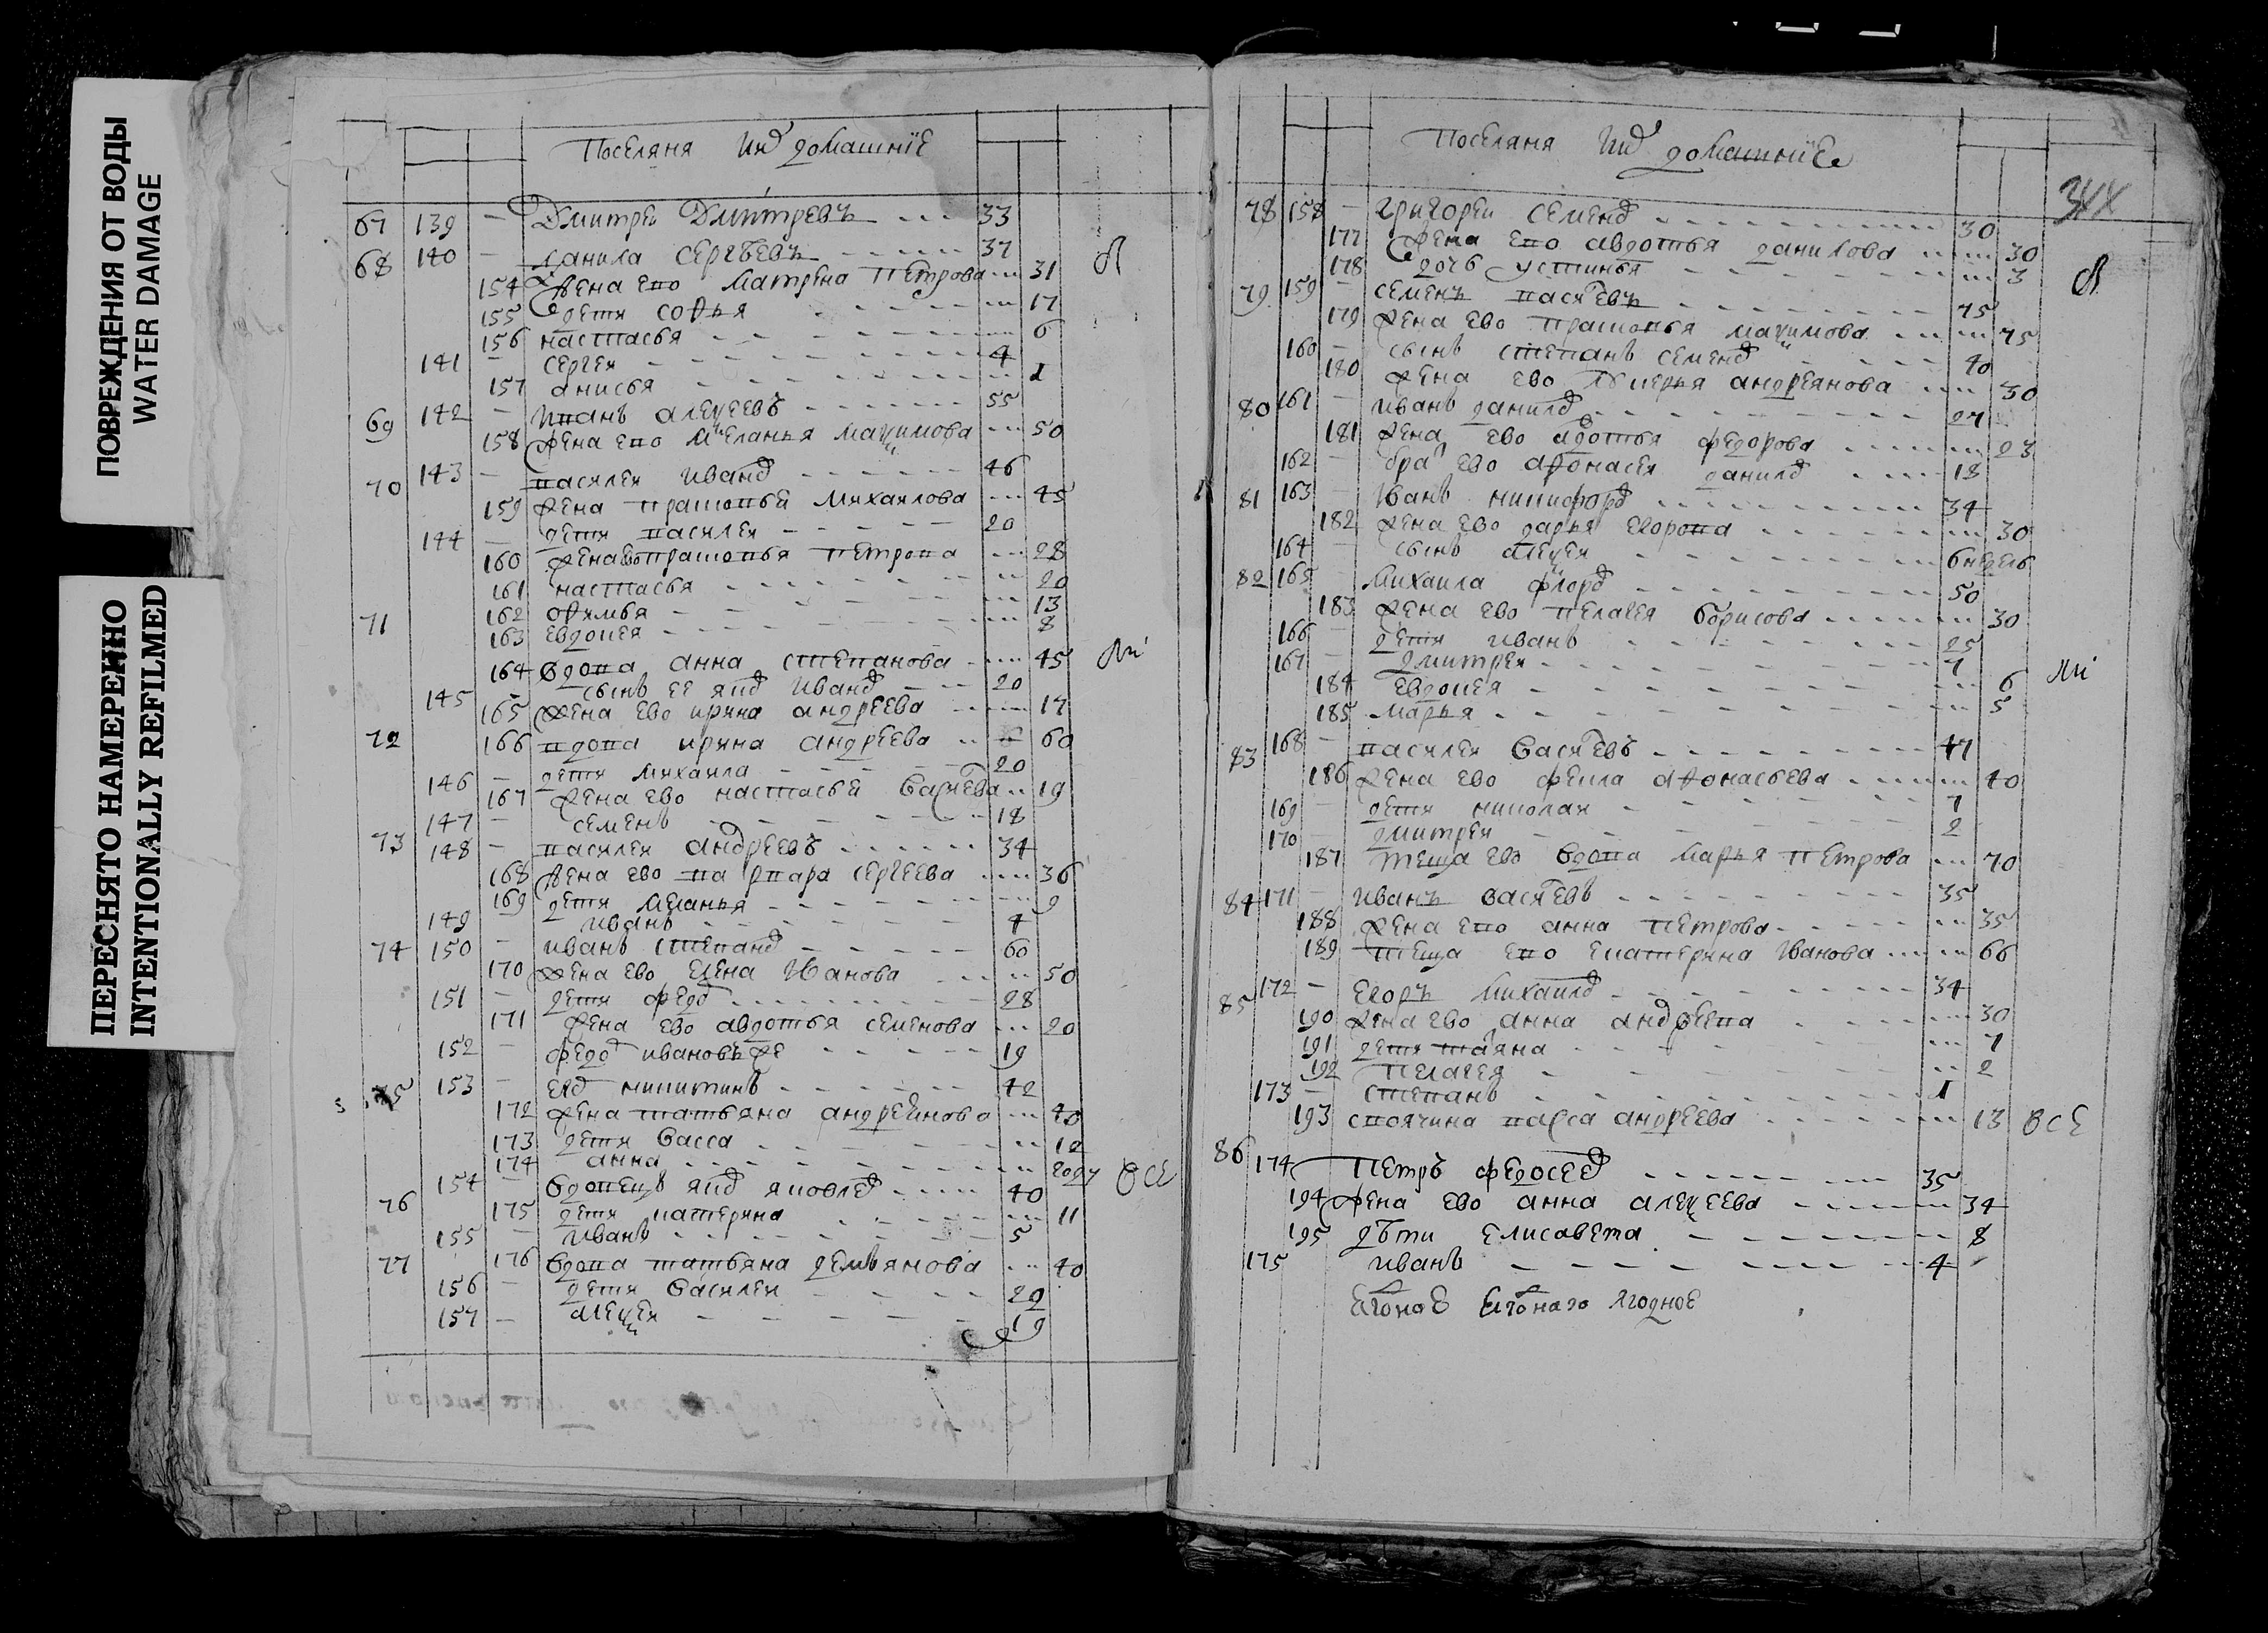 ПОВРЕЖДЕНИЯ ОТ ВОДЫ
WATER DAMAGE
ПЕРЕСНЯТО НАМЕРЕННО
INTENTIONALLY REFILMED
Поселяня домашнiе
67 139 — Дмитреи Дмитревъ 33
68 140 — данила Сергѣевъ 37
154 жена ево матрена петрова 31
155 дети софья 17
156 настасья 6
141 — сергеи 4
157 анисья 1
69 142 — иванъ алеѯеевъ 55
158 жена ево меланья маѯимова 50
70 143 — василеи иванов 46
159 жена прасковьѣ михаилова 45
144 — дети василеи 20
160 жена ево прасковья петрова 28
161 настасья 20
162 офимья 13
71 163 евдокея 8
164 вдова анна степанова 45
145 сынъ ее иванов 20
165 жена ево ирина андреева 17
72 166 вдова ирина андреева 60
146 — дети михаила 20
167 жена ево настасьѣ васильева 19
147 — семенъ 18
73 148 — василеи андреевъ 34
168 жена ево варвара сергеева 36
169 дети меланья 9
149 — иванъ 4
74 150 — иванъ степанов 60
170 жена ево елена иванова 50
151 — дети федор 28
171 жена ево авдотья семенова 20
152 — федор ивановъ же 19
75 153 — никитинъ 42
172 жена татьяна андреянова 40
173 дети васса 12
174 анна году
76 154 — вдовецъ яковлев 40 все
175 дети катерина 11
155 — иванъ 5
77 176 вдова татьяна демьянова 40
156 — дети василеи 29
157 — алеѯеи 19
Поселяня домашнiе
78 158 — григореи семенов 30
177 жена ево авдотья данилова 30
178 дочь устинья 3
79 159 — семенъ васильевъ 75
179 жена ево прасковья маѯимова 75
160 — сынъ степанъ семенов 40
180 жена ево андреянова 30
80 161 — иванъ данилов 27
181 жена ево авдотья федорова 23
162 — брат ево афонасеи данилов 18
81 163 — иванъ никифоров 34
182 жена ево дарья егорова 30
164 — сынъ алеѯеи 6 недель
82 165 — михаила флоров 50
183 жена ево пелагея борисова 30
166 — дети иванъ 25
167 — дмитреи 7
184 евдокея 6
185 марья 5
83 168 — василеи васильевъ 47
186 жена ево фекла афонасьева 40
169 — дети николаи 7
170 — дмитреи 2
187 теща ево вдова марья петрова 70
84 171 — иванъ васильевъ 35
188 жена ево анна петрова 35
189 теща ево екатерина иванова 66
85 172 — егоръ михаилов 34
190 жена ево анна андреева 30
191 дети татьяна 7
192 пелагея 2
173 — степанъ 1
193 своячина васса андреева 13 все
86 174 петръ федосеев 35
194 жена ево анна алеѯеева 34
195 дѣти елисавета 8
175 иванъ 4
ягодное